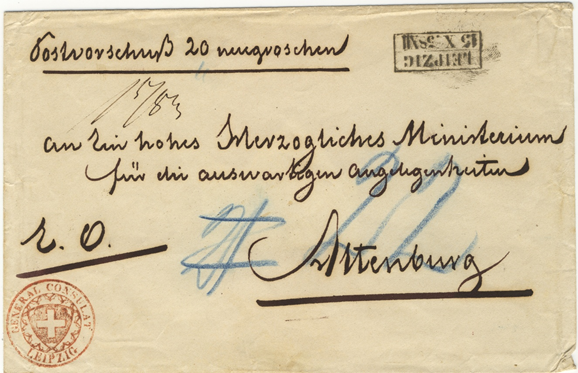 Postvorschuß 20 neugroschen
LEIPZIG
15 X
an Ein hohes Herzogliches Ministerium
für die auswärtigen Angelegenheiten
Altenburg
GENERAL CONSULAT
LEIPZIG